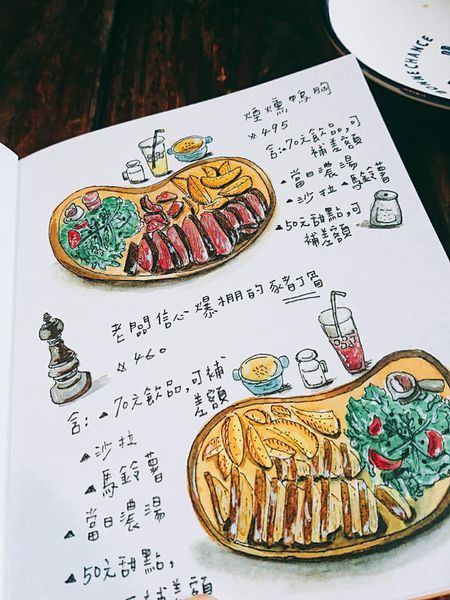 CHANCECHANCE
煙燻鴨胸
$495
含:▲70元飲品,可
補差額
▲當日濃湯
▲沙拉▲馬鈴薯
▲50元甜點,可
補差額
老闆信心爆棚的豬肋骨
$460
含:▲70元飲品,可補
差額
▲沙拉
▲馬鈴薯
▲當日濃湯
▲50元甜點,
補差額